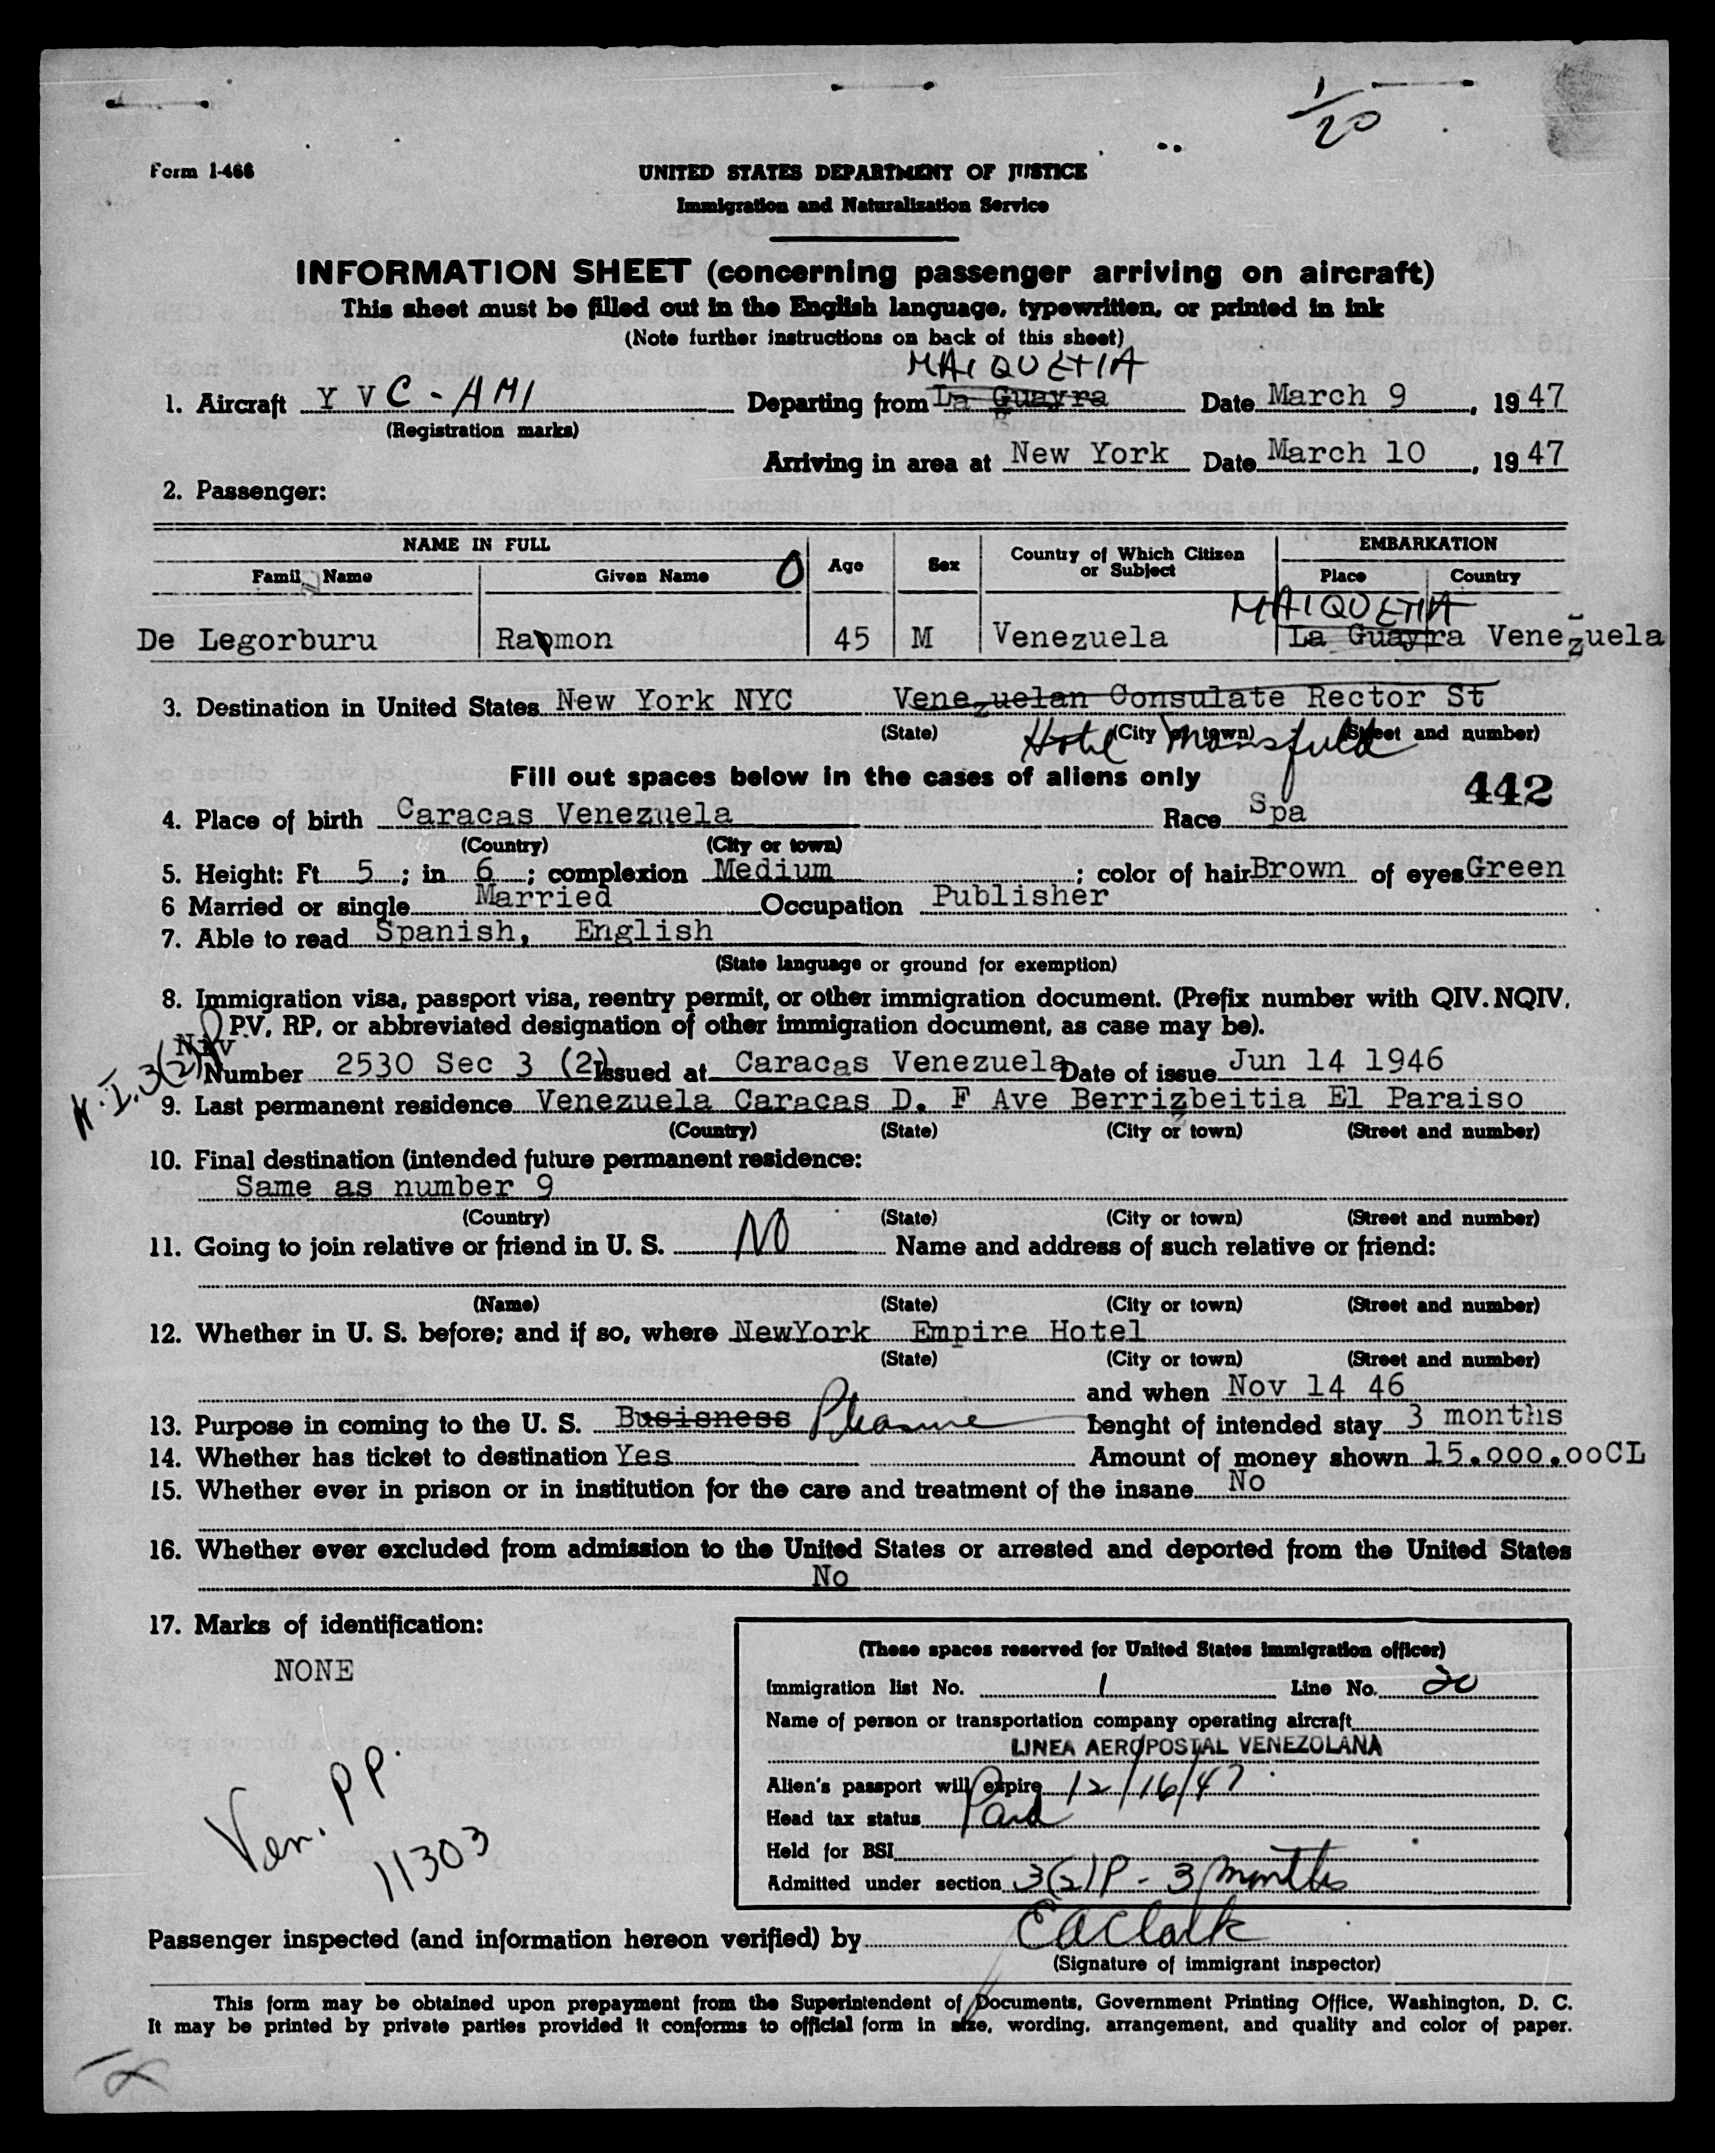 1/20
Form I-466
UNITED STATES DEPARTMENT OF JUSTICE
Immigration and Naturalization Service
INFORMATION SHEET (concerning passenger arriving on aircraft)
This sheet must be filled out in the English language, typewritten, or printed in ink
(Note further instructions on back of this sheet)
MAIQUETIA
1. Aircraft Y V C - AMI Departing from La Guayra Date March 9, 1947
(Registration marks)
Arriving in area at New York Date March 10, 1947
2. Passenger:
NAME IN FULL O Age Sex Country of Which Citizen or Subject EMBARKATION
Family Name Given Name Place Country
MAIQUETIA
De Legorburu Ramon 45 M Venezuela La Guayra Venezuela
3. Destination in United States New York NYC Venezuelan Consulate Rector St
(State) (City or town) (Street and number)
Hotel Mansfield
Fill out spaces below in the cases of aliens only 442
4. Place of birth Caracas Venezuela Race Spa
(Country) (City or town)
5. Height: Ft 5; in 6; complexion Medium; color of hair Brown of eyes Green
6 Married or single Married Occupation Publisher
7. Able to read Spanish, English
(State language or ground for exemption)
8. Immigration visa, passport visa, reentry permit, or other immigration document. (Prefix number with QIV. NQIV,
PV, RP, or abbreviated designation of other immigration document, as case may be).
N.I. 3(2)P
Number 2530 Sec 3 (2) Issued at Caracas Venezuela Date of issue Jun 14 1946
9. Last permanent residence Venezuela Caracas D. F Ave Berrizbeitia El Paraiso
(Country) (State) (City or town) (Street and number)
10. Final destination (intended future permanent residence:
Same as number 9
(Country) (State) (City or town) (Street and number)
11. Going to join relative or friend in U. S. NO Name and address of such relative or friend:
(Name) (State) (City or town) (Street and number)
12. Whether in U. S. before; and if so, where NewYork Empire Hotel
(State) (City or town) (Street and number)
and when Nov 14 46
13. Purpose in coming to the U. S. Busisness Pleasure Lenght of intended stay 3 months
14. Whether has ticket to destination Yes Amount of money shown 15.000.00CL
15. Whether ever in prison or in institution for the care and treatment of the insane No
16. Whether ever excluded from admission to the United States or arrested and deported from the United States
No
17. Marks of identification:
NONE
(These spaces reserved for United States immigration officer)
Immigration list No. 1 Line No. 20
Name of person or transportation company operating aircraft
LINEA AEROPOSTAL VENEZOLANA
Alien's passport will expire 12/16/47
Head tax status Paid
Held for BSI
Admitted under section 3(2)P - 3 months
Ven. PP.
11303
Passenger inspected (and information hereon verified) by EAClark
(Signature of immigrant inspector)
This form may be obtained upon prepayment from the Superintendent of Documents, Government Printing Office, Washington, D. C.
It may be printed by private parties provided it conforms to official form in size, wording, arrangement, and quality and color of paper.